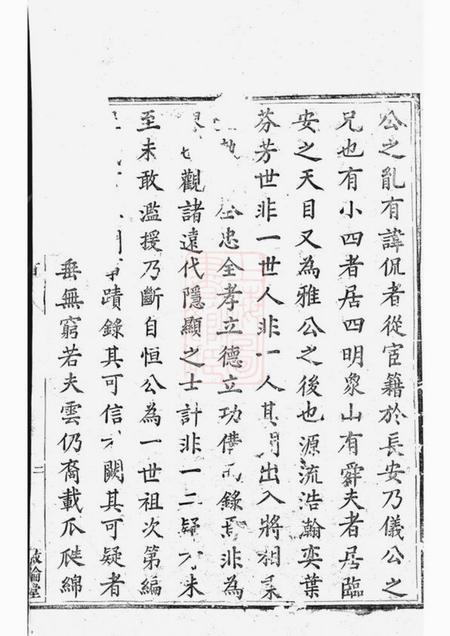 公之亂有諱侃者從宦籍於長安乃儀公之
兄也有小四者居四明象山有舜夫者居臨
安之天目又為雅公之後也源流浩瀚奕葉
芬芳世非一世人非一人其間出入將相
全忠全孝立德立功 錄 非為
觀諸遠代隱顯之士計非一二疑 未
至未敢濫援乃斷自恒公為一世祖次第編
蹟錄其可信 闕其可疑者
垂無窮若夫雲仍裔載瓜瓞綿
二